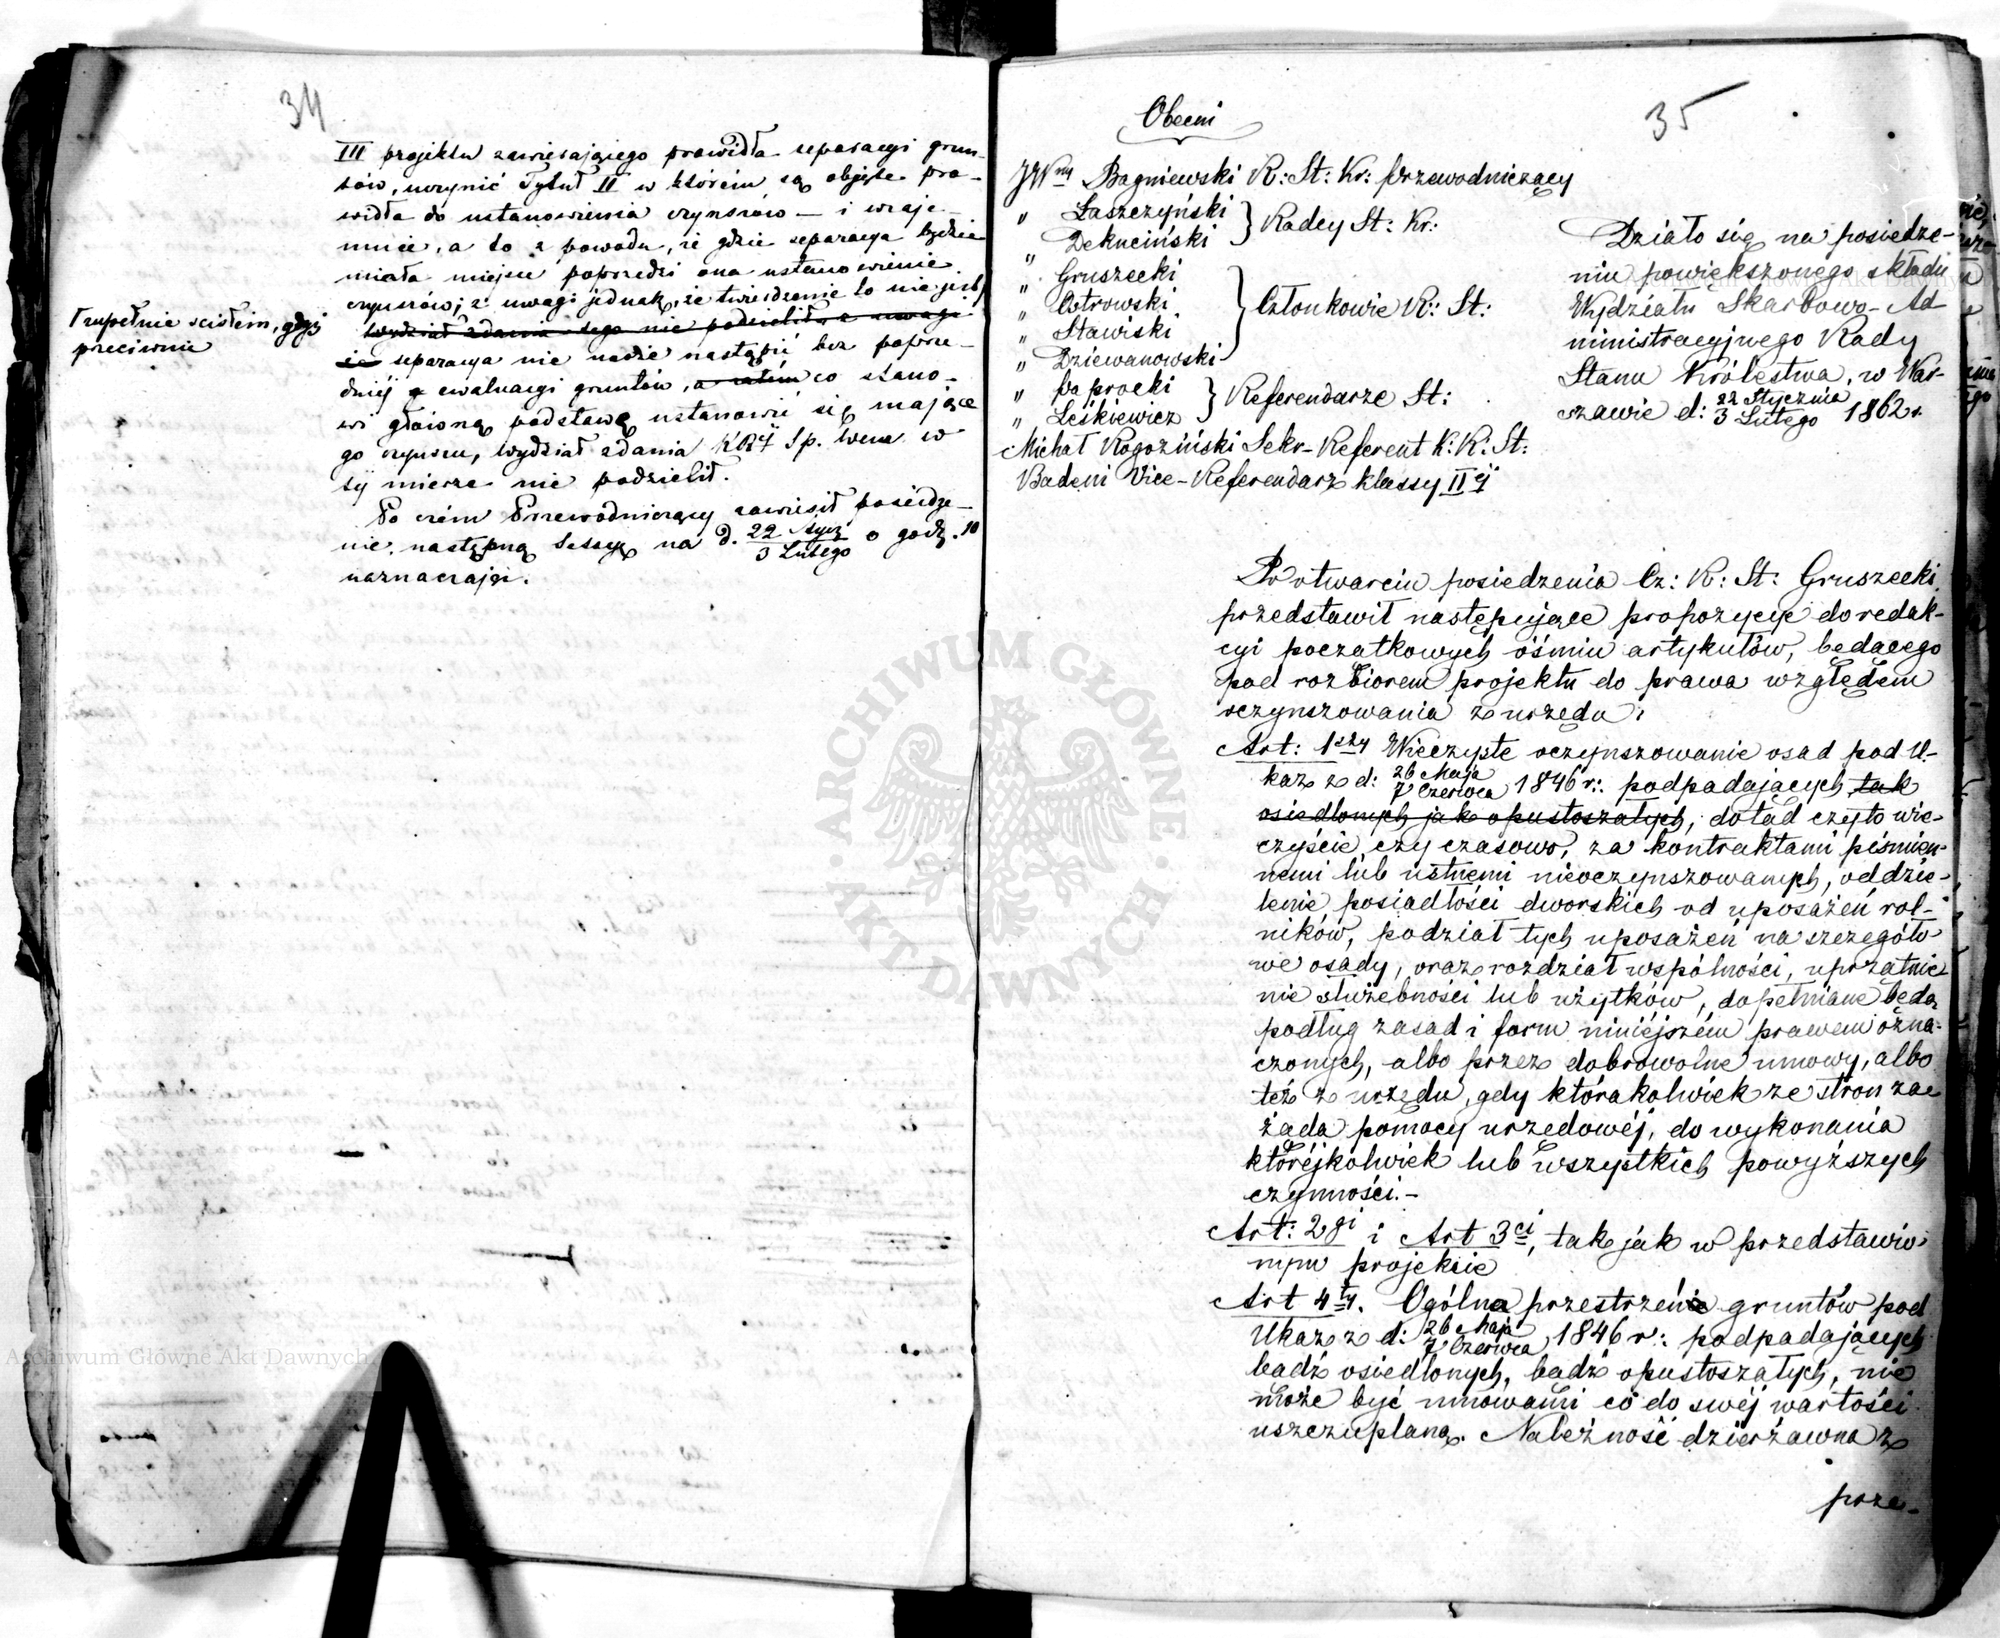 34
III projektu zawierającego prawidła separacyi grun-
tów, uczynić Tytuł II w którém są objęte pra-
widła do ustanowienia czynszów — i wzaje-
mnie, a to z powodu, że gdzie separacya będzie
miała miejsce poprzedzi ona ustanowienie
czynszów; z uwagi jednak, że twierdzenie to nie jest
zupełnie scisłem, gdyż
przeciwnie
wydział zdania tego nie podzielił, z uwagi
że separacya nie może nastąpić bez poprze-
dniéj ewaluacyi gruntów, a zatém co stano-
wi głowną podstawę ustanowić się mające
go czynszu, wydział zdania KRz Sp. Wew. w
téj mierze nie podzielił.
Po czém Przewodniczący zawiesił posiedze-
nie, następną Sessyę na d. 22 Stycz / 3 Lutego o godz. 10
naznaczając.
35
Obecni
JWny Bagniewski R: St: Kr: Przewodniczący
„ Łaszczyński
„ Dekuciński
Radcy St: Kr:
„ Gruszecki
„ Ostrowski
„ Stawiski
„ Dziewanowski
Członkowie R: St:
„ Paprocki
„ Leśkiewicz
Referendarze St:
Michał Rogoziński Sekr-Referent K: R: St:
Badeni Vice-Referendarz klassy IIéj
Działo się na posiedze-
niu powiększonego składu
Wydziału Skarbowo-Ad
ministracyjnego Rady
Stanu Królestwa, w War-
szawie d: 22 Stycznia / 3 Lutego 1862 r.
Po otwarciu posiedzenia Cz: R: St: Gruszecki
przedstawił następujące propozycye do redak-
cyi początkowych ośmiu artykułów, będącego
pod rozbiorem projektu do prawa względem
oczynszowania z urzędu:
Art: 1szy Wieczyste oczynszowanie osad pod U-
kaz z d: 26 Maja / 7 Czerwca 1846 r: podpadających tak
osiedlonych jako opustoszałych, dotąd czy to wie-
czyście, czy czasowo, za kontraktami piśmien-
nemi lub ustnemi nieoczynszowanych, oddzie-
lenie posiadłości dworskich od uposażeń rol-
ników, podział tych uposażeń na szczegóło
we osady, oraz rozdział wspólności, uprzątnie
nie służebności lub użytków, dopełniane będą
podług zasad i form niniéjszém prawem ozna-
czonych, albo przez dobrowolne umowy, albo
też z urzędu, gdy którakolwiek ze stron za-
żąda pomocy urzędowéj, do wykonania
któréjkolwiek lub wszystkich powyższych
czynności.-
Art: 2gi i Art 3ci, tak jak w przedstawio-
nym projekcie
Art 4ty. Ogólna przestrzeń gruntów pod
Ukaz z d: 26 Maja / 7 Czerwca 1846 r: podpadających
bądź osiedlonych, bądź opustoszałych, nie
może być umowami co do swéj wartości
uszczuplaną. Należność dzierżawna z
prze-
Archiwum Główne Akt Dawnych
Archiwum Główne Akt Dawnych
ARCHIWUM GŁÓWNE AKT DAWNYCH